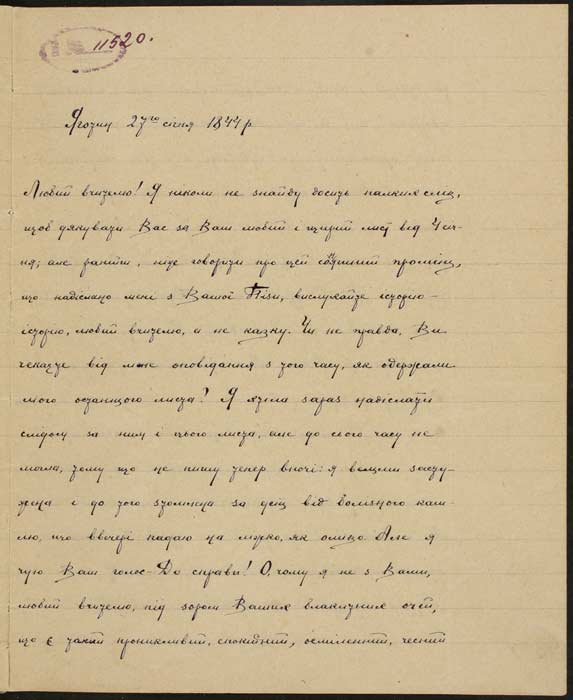 11520.
Яготин 27го січня 1844 р
Любий вчителю! Я ніколи не знайду досить палких слів,
щоб дякувати Вас за Ваш любий і щирий лист від 4 січ-
ня; але раніш, ніж говорити про цей промінь,
що надіслано мені з Вашої Пізи, вислухайте історію-
історію, любий вчителю, а не казку. Чи не правда, Ви
чекаєте від мене оповідання з того часу, як одержали
мого останнього листа? Я хтіла зараз надіслати
слідом за ним і цього листа, але до сього часу не
могла, тому що не пишу тепер вночі: я вельми засту-
жена і до того зтомлена за день від болізного каш-
лю, що ввечері падаю на ліжко, як оливо. Але я
чую Ваш голос - До справи! О, чому я не з Вами,
любий вчителю, під зором Ваших блакитних очей,
що є такий проникливий, спокійний, осмілений, чесний